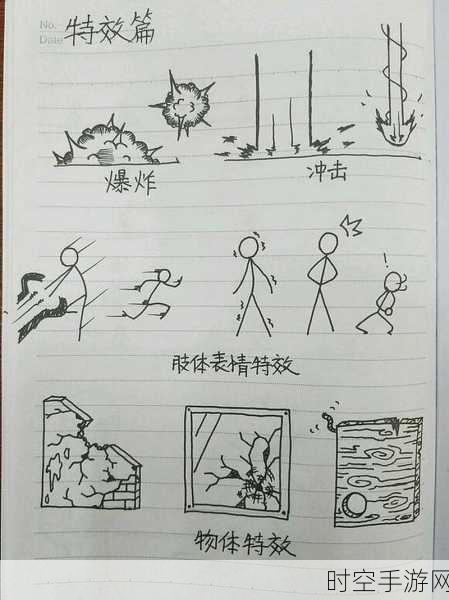 No.
特效篇
Date
爆炸
冲击
!
肢体表情特效
物体特效
时空手游网